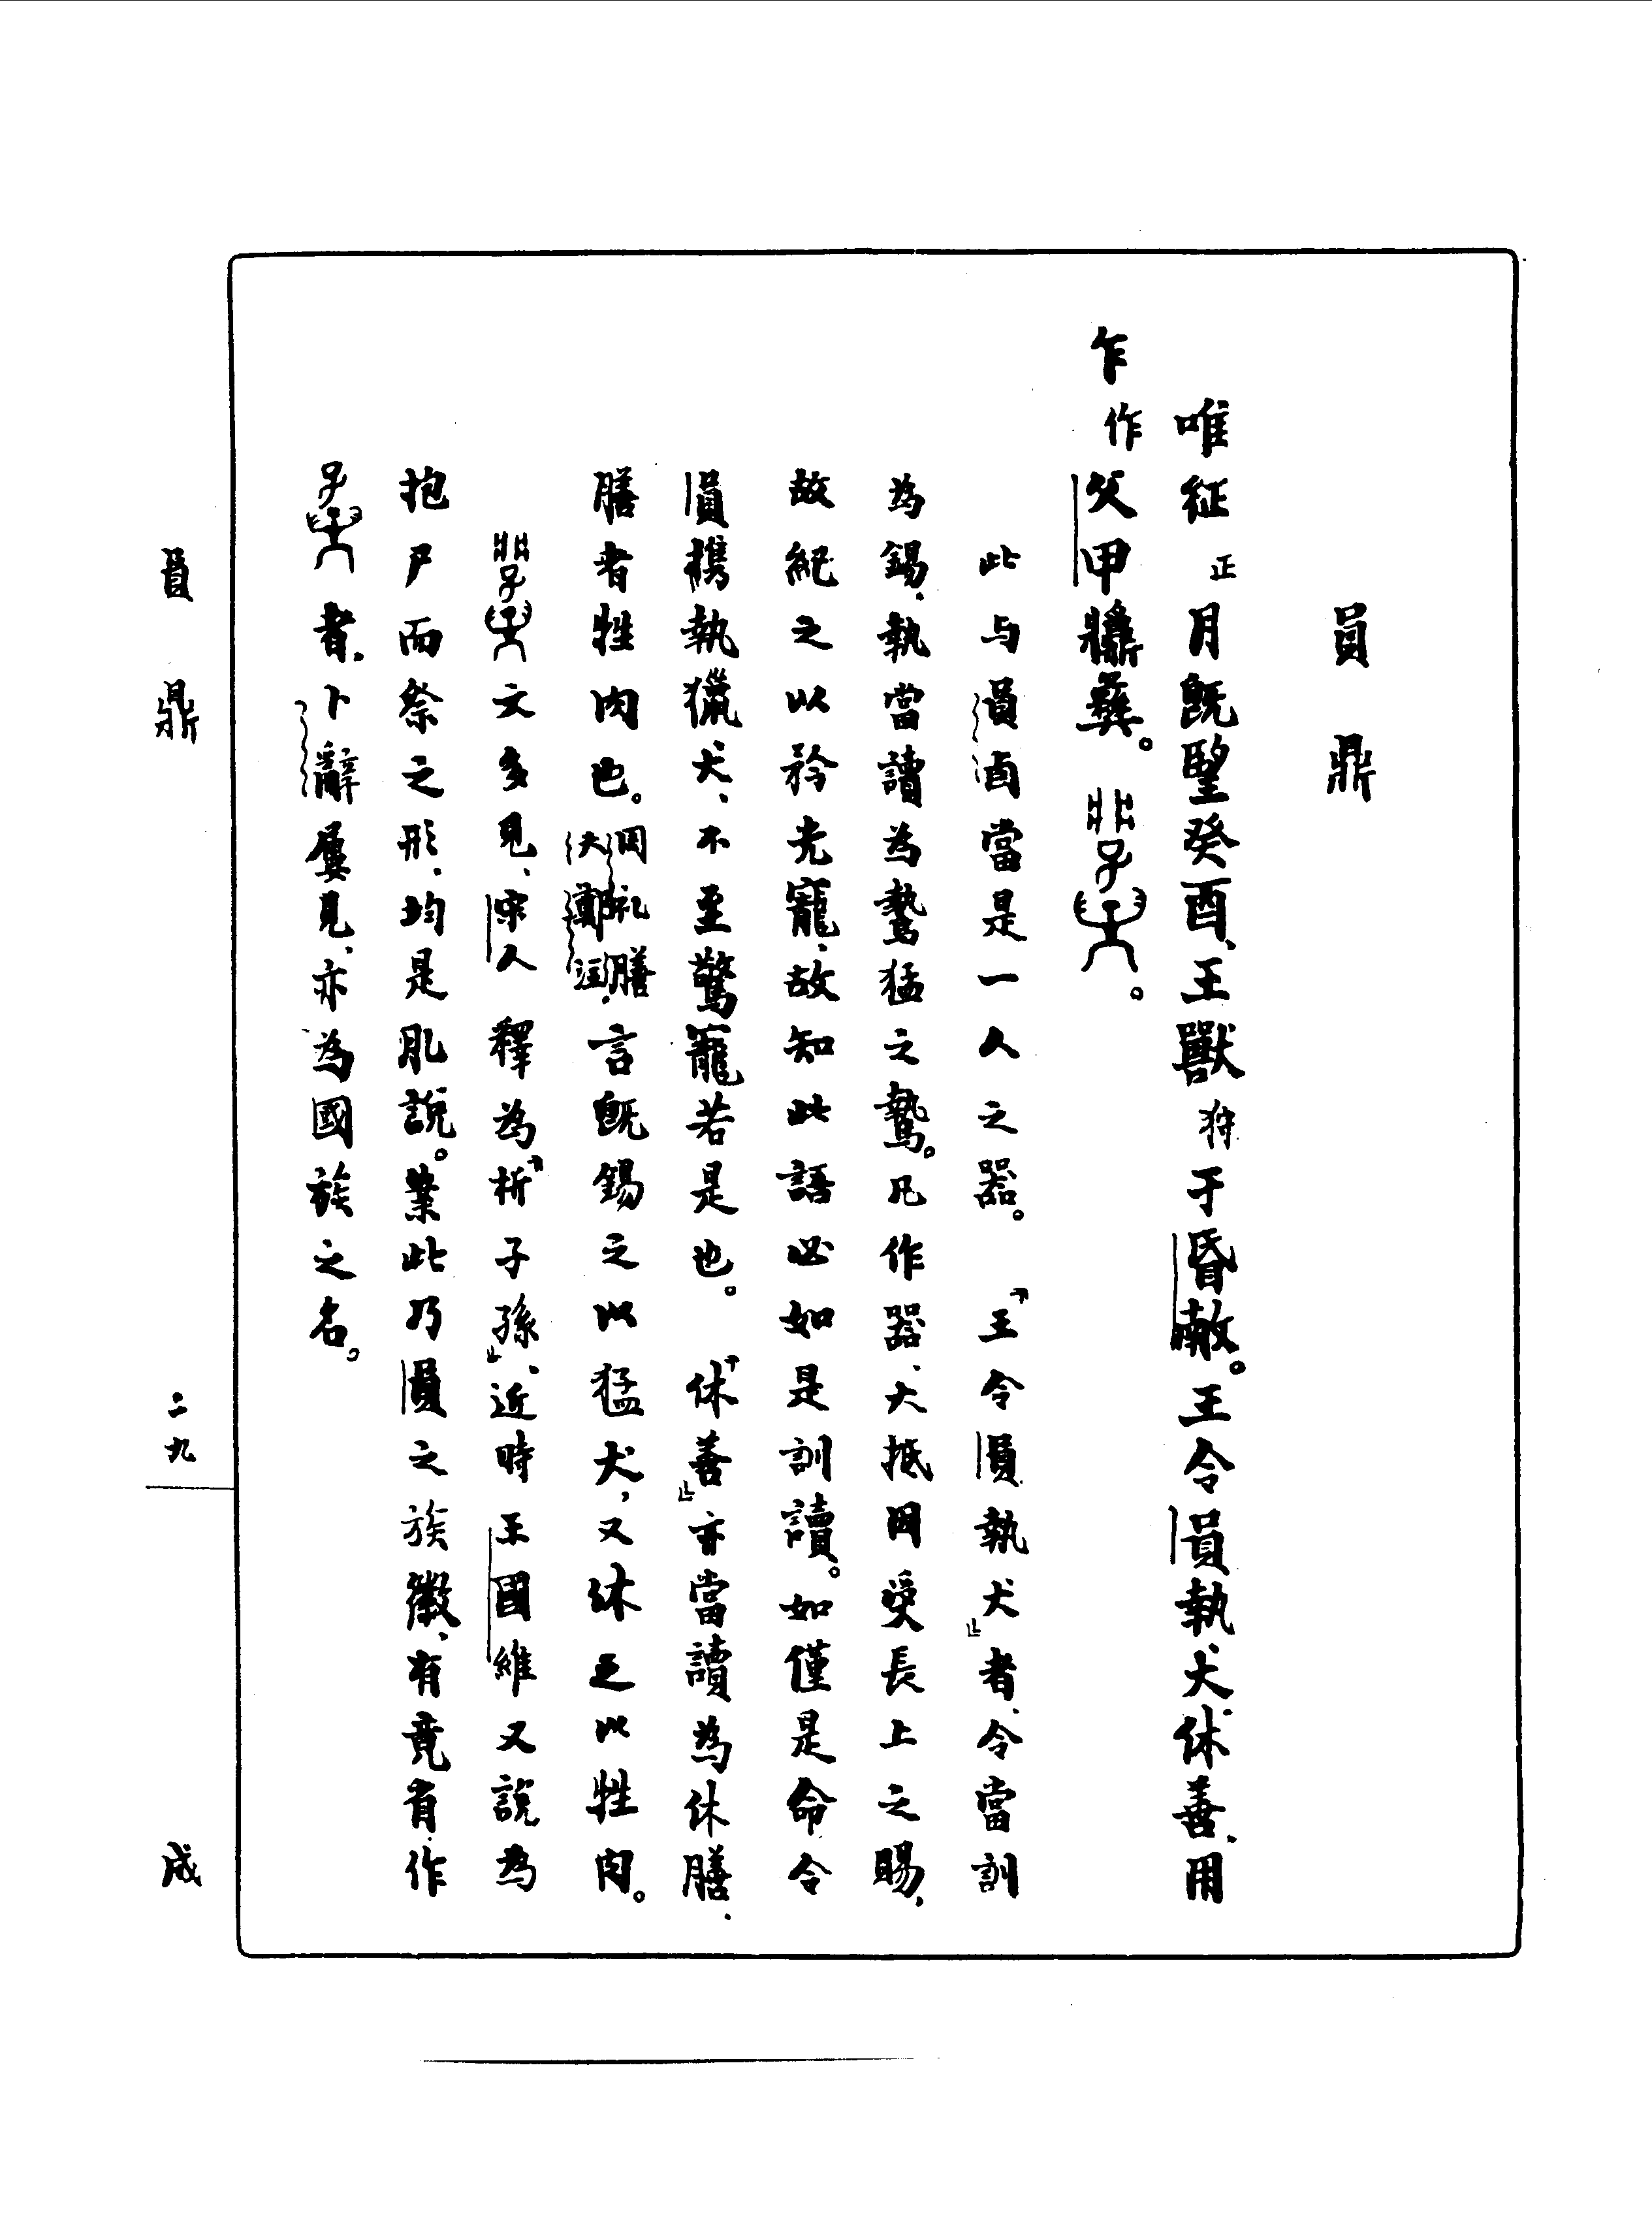 員鼎
唯征正月既朢癸酉、王獸狩于昏𢾭。王令員執犬、休善、用
乍作父甲䵼彝。。
此与員卣當是一人之器。「王令員執犬」者、令當訓
為錫、執當讀為鷙猛之鷙。凡作器、大抵因受長上之賜、
故紀之以矜光寵、故知此語必如是訓讀。如僅是命令
員攜執獵犬、不至驚寵若是也。「休善」亦當讀為休膳、
膳者牲肉也。周礼膳夫鄭注、言既錫之以猛犬，又休之以牲肉。
文多見、宋人釋為「析子孫」、近時王國維又說為
抱尸而祭之形、均是肊說。案此乃員之族徽、有竟省作
者、卜辭屢見、亦為國族之名。
員鼎
二九
成